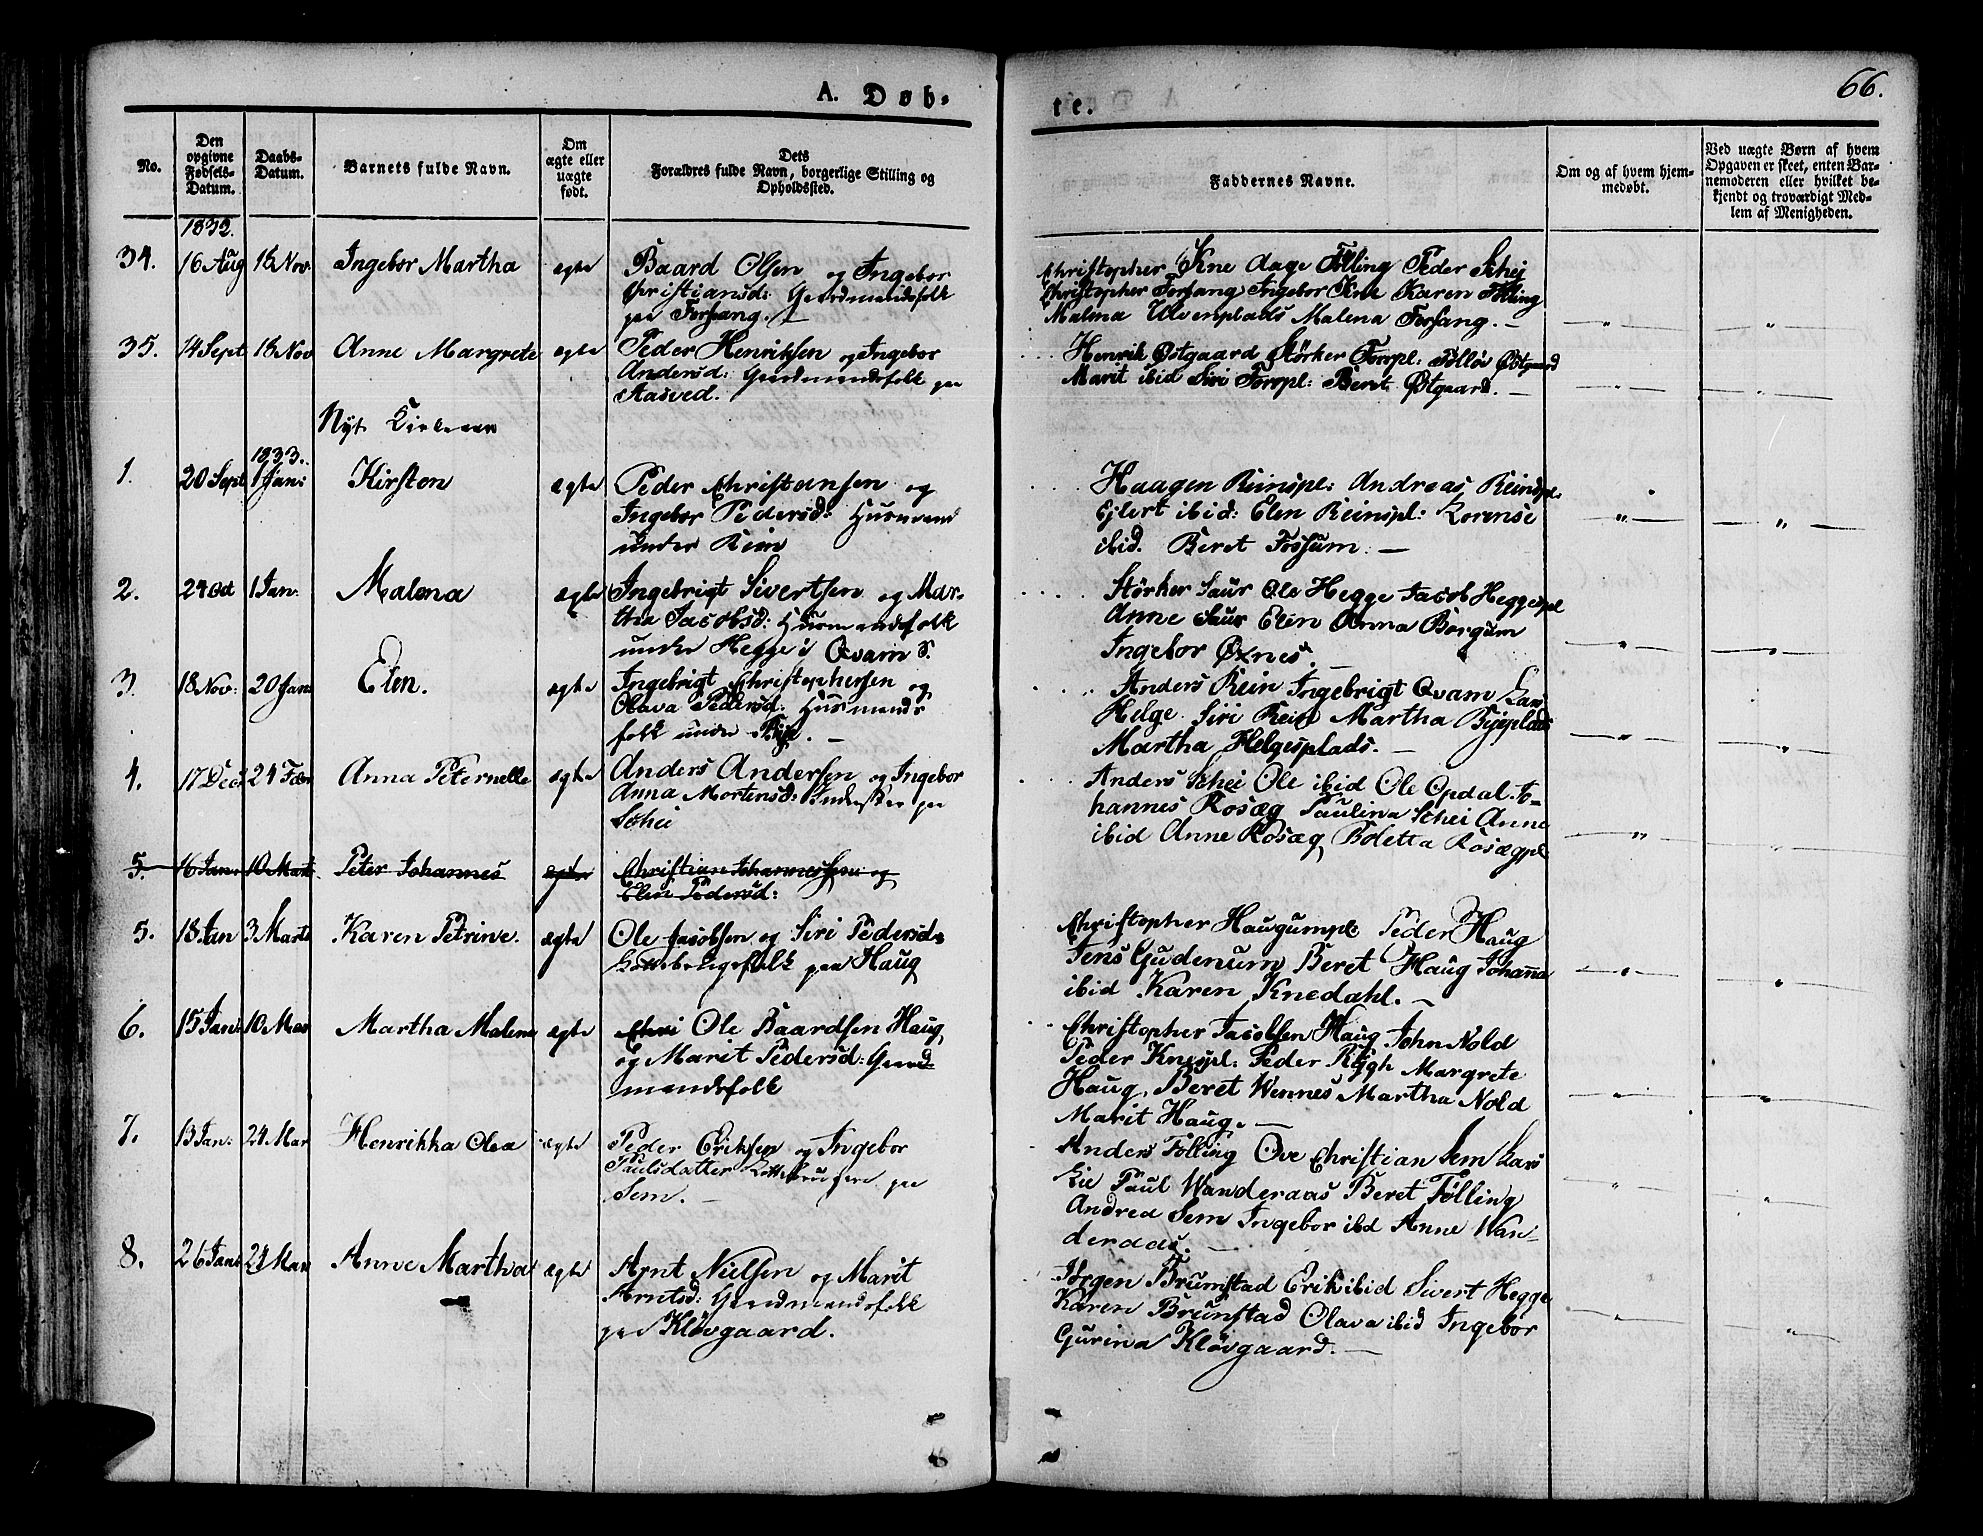 A. Døb-
te.
66.
No.
Den opgivne Fødsels-Datum.
Daabs-Datum.
Barnets fulde Navn.
Om ægte eller uægte født.
Dets
Forældres fulde Navn, borgerlige Stilling og
Opholdssted.
Faddernes Navne.
Om og af hvem hjem-
medøbt.
Ved uægte Børn af hvem
Opgaven er skeet, enten Bar-
nemoderen eller hvilket be-
kjendt og troværdigt Med-
lem af Menigheden.
1832.
34. 16 Aug 18 Nov. Ingebor Martha ægte Baard Olsen og Ingebor
Christiansd: Gaardmandsfolk
paa Forfang.
Christopher Kne Aage Følling Peder Schej
Christopher Forfang Ingebor Kne Karen Følling
Malma Ulvenplads Malena Forfang. —
35. 14 Sept 18 Nov Anne Margrete ægte Peder Henriksen og Ingebor
Andersd: Gaardmandsfolk paa
Aasved.
Henrik Østgaard Størker Forpl: Følløv Østgaard
Marit ibid Siri Forpl: Beret Østgaard. —
Nyt
1833.
1. 20 Sept 1 Jan: Kirsten ægte Peder Christansen og
Ingebor Pedersd: Husmand
under Rein
Haagen Reinspl: Andreas Reinspl:
Ejlert ibid: Elen Reinspl: Lorense
ibid. Beret Fossum. —
2. 24 Oct 1 Jan: Malena ægte Ingebrigt Sivertsen og Mar-
tha Jacobsd: Husmandsfolk
under Hegge i Qvam S.
Størker Saur Ole Hegge Jacob Heggespl
Anne Saur Elen Anna Borgum
Ingebor Øxnes. —
3. 18 Nov: 20 Jan Elen. ægte Ingebrigt Christophersen og
Olava Pedersd. Husmands
folk under
Anders Rein Ingebrigt Qvam Lars
Helge Siri Rein Martha Byeplads
Martha Helgesplads. —
4. 17 Dec: 24 Febr Anna Peternelle ægte Anders Andersen og Ingebor
Anna Mortensd: Inderster paa
Schei
Anders Schei Ole ibid Ole Opdal Jo-
hannes Rosæg Paulina Schei Anne
ibid Anne Rosæg Boletta Rosægpl
5. 16 Jan. 10 Marti Peter Johannes ægte Christian Johannessen og
Elen Pedersd:
5. 18 Jan 3 Marts Karen Petrine. ægte Ole Jacobsen og Siri Pedersd:
paa Haug
Christopher Haugumpl: Peder Haug
Jens Gudenum Beret Haug Johanna
ibid Karen Knedahl. —
6. 15 Jan: 10 Mar Martha Malene ægte Chri Ole Baardsen Haug
og Marit Pedersd: Gaard
mandsfolk
Christopher Jacobsen Haug John Nold
Peder Knespl. Peder Rygh Margrete
Haug, Beret Wennes Martha Nold
Marit Haug. —
7. 13 Jan: 24 Mar Henrikka Olea ægte Peder Eriksen og Ingebor
Paulsdatter paa
Sem. —
Anders Følling Ove Christian Sem Lars
Lie Paul Wanderaas Beret Følling
Andrea Sem Ingebor ibd Anne Wan-
deraas. —
8. 26 Jan: 24 Mar Anne Martha ægte Arnt Nielsen og Marit
Arntsd: Gaardmandsfolk
paa Kløvgaard.
Jørgen Brunstad Erik ibid Sivert Hegge
Karen Brunstad Olava ibid Ingebor
Gurina Kløvgaard. —